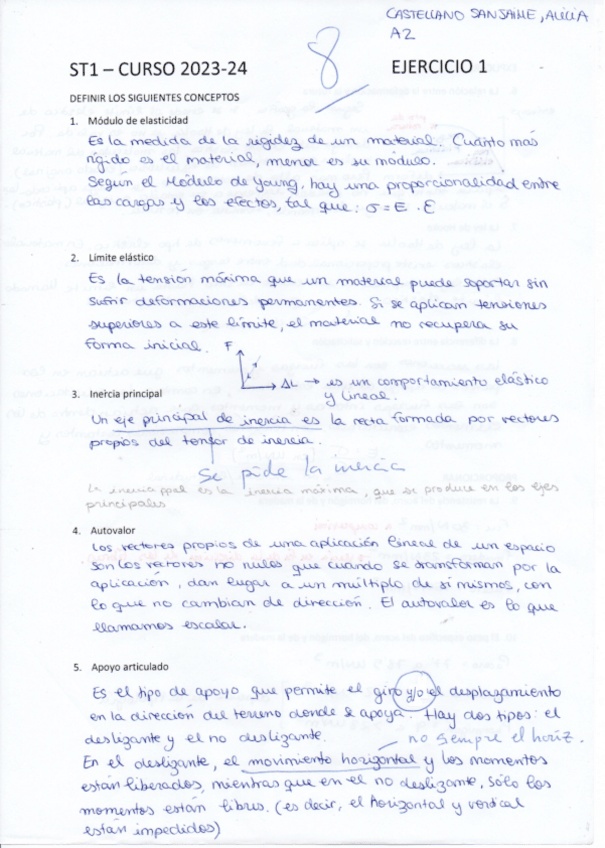 CASTELLANO SANJAIME, ALICIA
A2
8
ST1 – CURSO 2023-24
EJERCICIO 1
DEFINIR LOS SIGUIENTES CONCEPTOS
1. Módulo de elasticidad
Es la medida de la rigidez de un material. Cuánto más
rígido es el material, menor es su módulo.
Según el Módulo de Young, hay una proporcionalidad entre
las cargas y los efectos, tal que: σ = E · ε
2. Límite elástico
Es la tensión máxima que un material puede soportar sin
sufrir deformaciones permanentes. Si se aplican tensiones
superiores a este límite, el material no recupera su
forma inicial.
F
ΔL → es un comportamiento elástico
y lineal.
3. Inercia principal
Un eje principal de inercia es la recta formada por vectores
propios del tensor de inercia.
Se pide la inercia
La inercia ppal es la inercia máxima, que se produce en los ejes
principales
4. Autovalor
Los vectores propios de una aplicación lineal de un espacio
son los vectores no nulos que cuando se transforman por la
aplicación, dan lugar a un múltiplo de sí mismos, con
lo que no cambian de dirección. El autovalor es lo que
llamamos escalar.
5. Apoyo articulado
Es el tipo de apoyo que permite el giro y/o el desplazamiento
en la dirección del terreno donde se apoya. Hay dos tipos: el
deslizante y el no deslizante.
no siempre el horiz.
En el deslizante, el movimiento horizontal y los momentos
están liberados, mientras que en el no deslizante, sólo los
momentos están libres. (es decir, el horizontal y vertical
están impedidos)